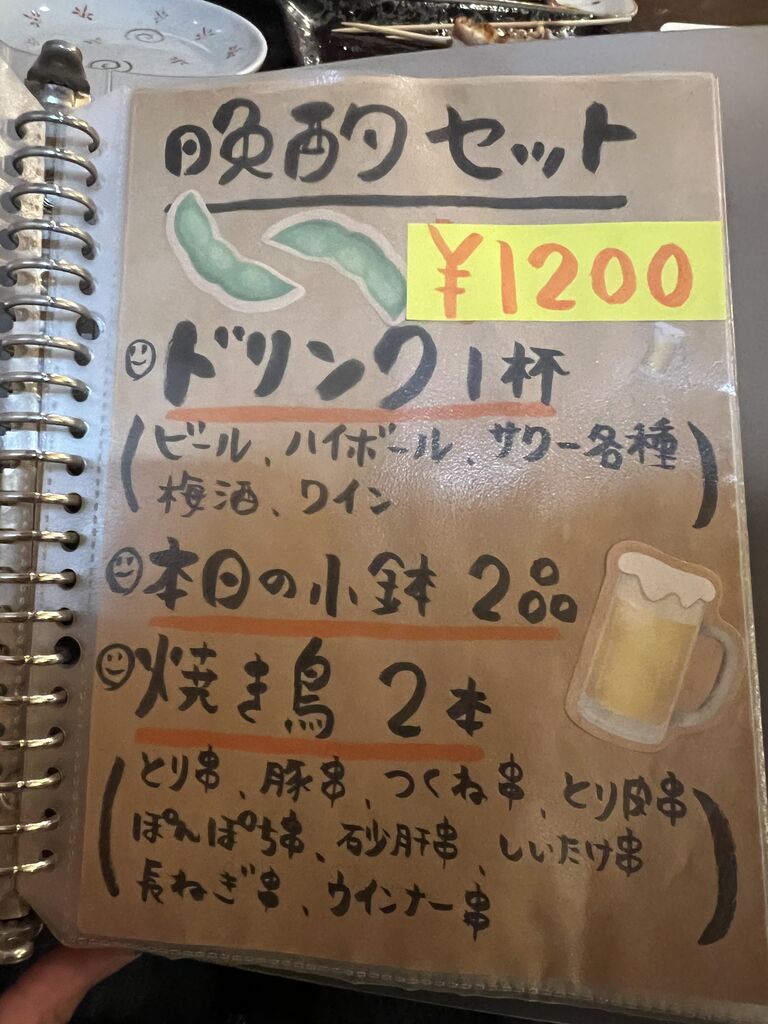 晩酌セット
¥1200
ドリンク1杯
(ビール、ハイボール、サワー各種
梅酒、ワイン)
本日の小鉢 2品
焼き鳥 2本
(とり串、豚串、つくね串、とり皮串
ぽんぽち串、砂肝串、しいたけ串
長ねぎ串、ウインナー串)